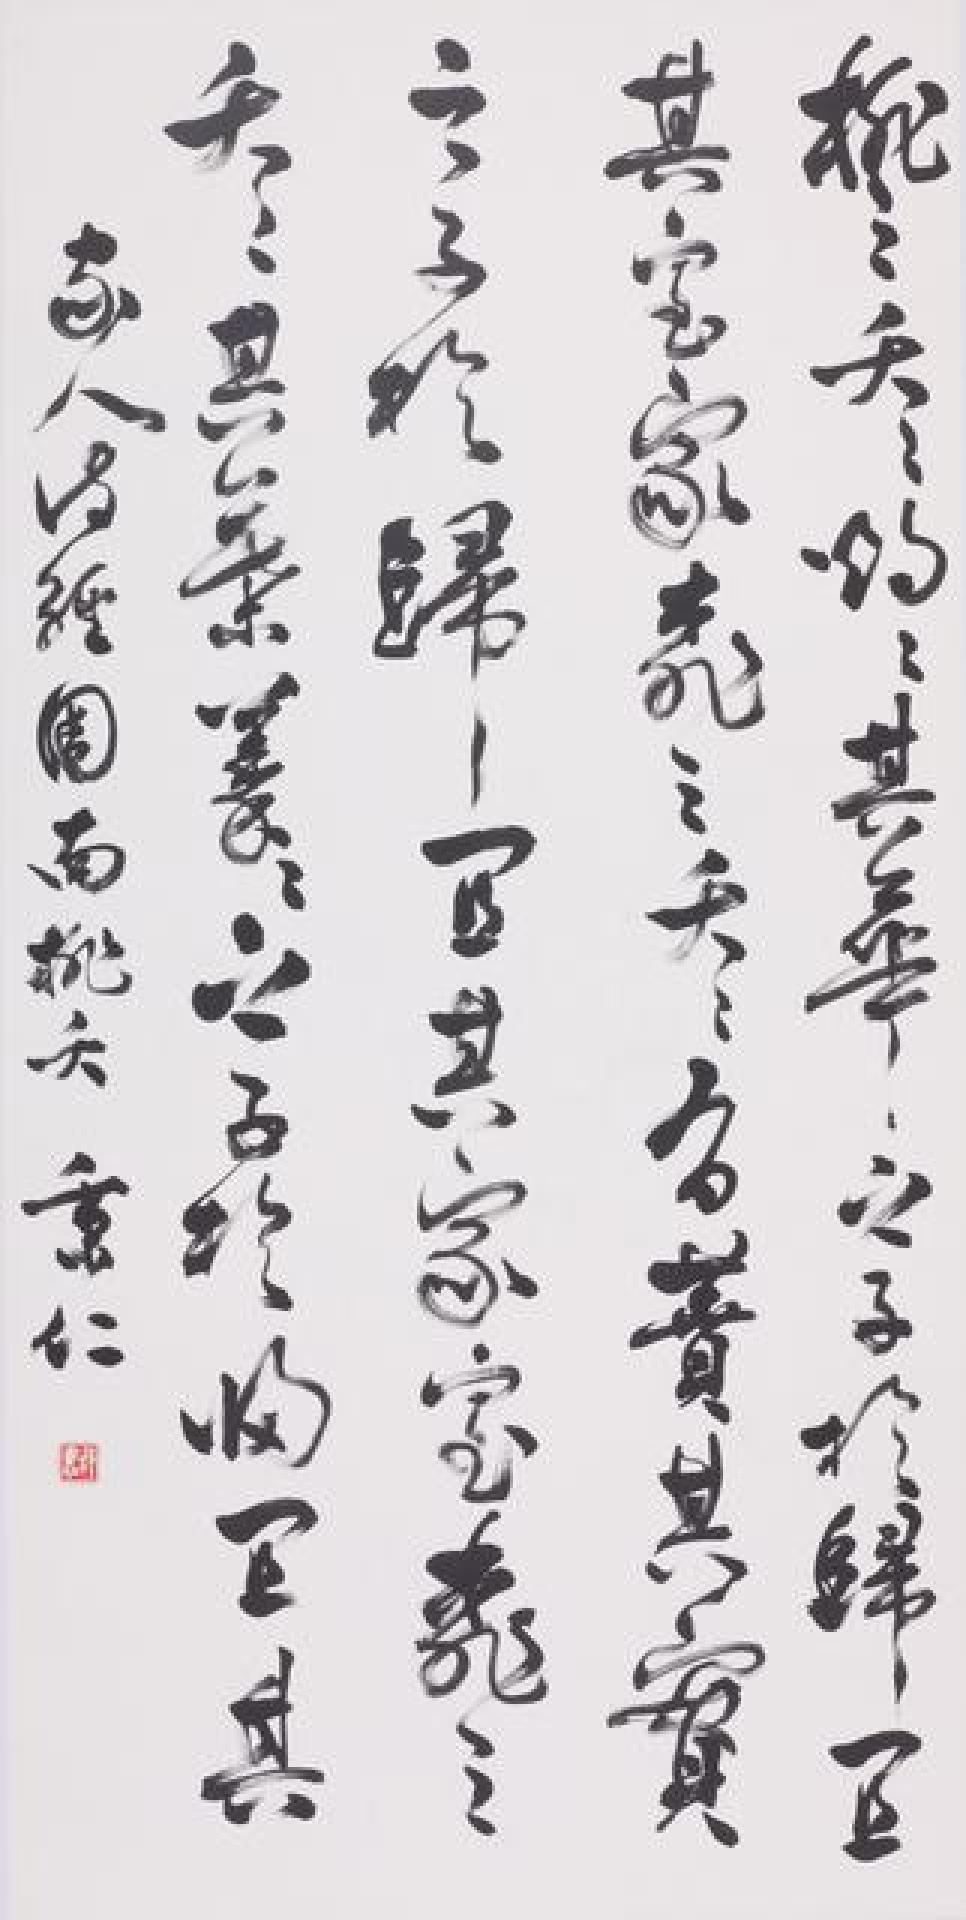 桃之夭々灼々其華之子於歸宜
其室家桃之夭々有蕡其實
之子於歸宜其家室桃之
夭々其葉蓁々之子於歸宜其
家人詩經周南桃夭 秉仁